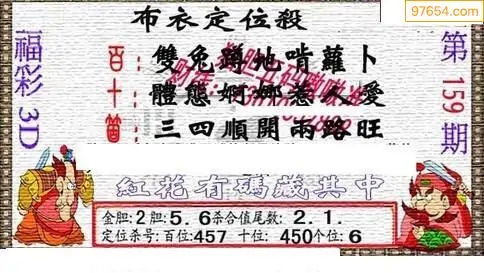 97654.com
布衣定位殺
福彩3D
第159期
百:雙兔蹲地啃蘿卜
十:體態婀娜惹人愛
個:三四順開兩路旺
紅花有碼藏其中
金胆:2胆:5.6杀合值尾数:2.1.
定位杀号:百位:457十位:450个位:6